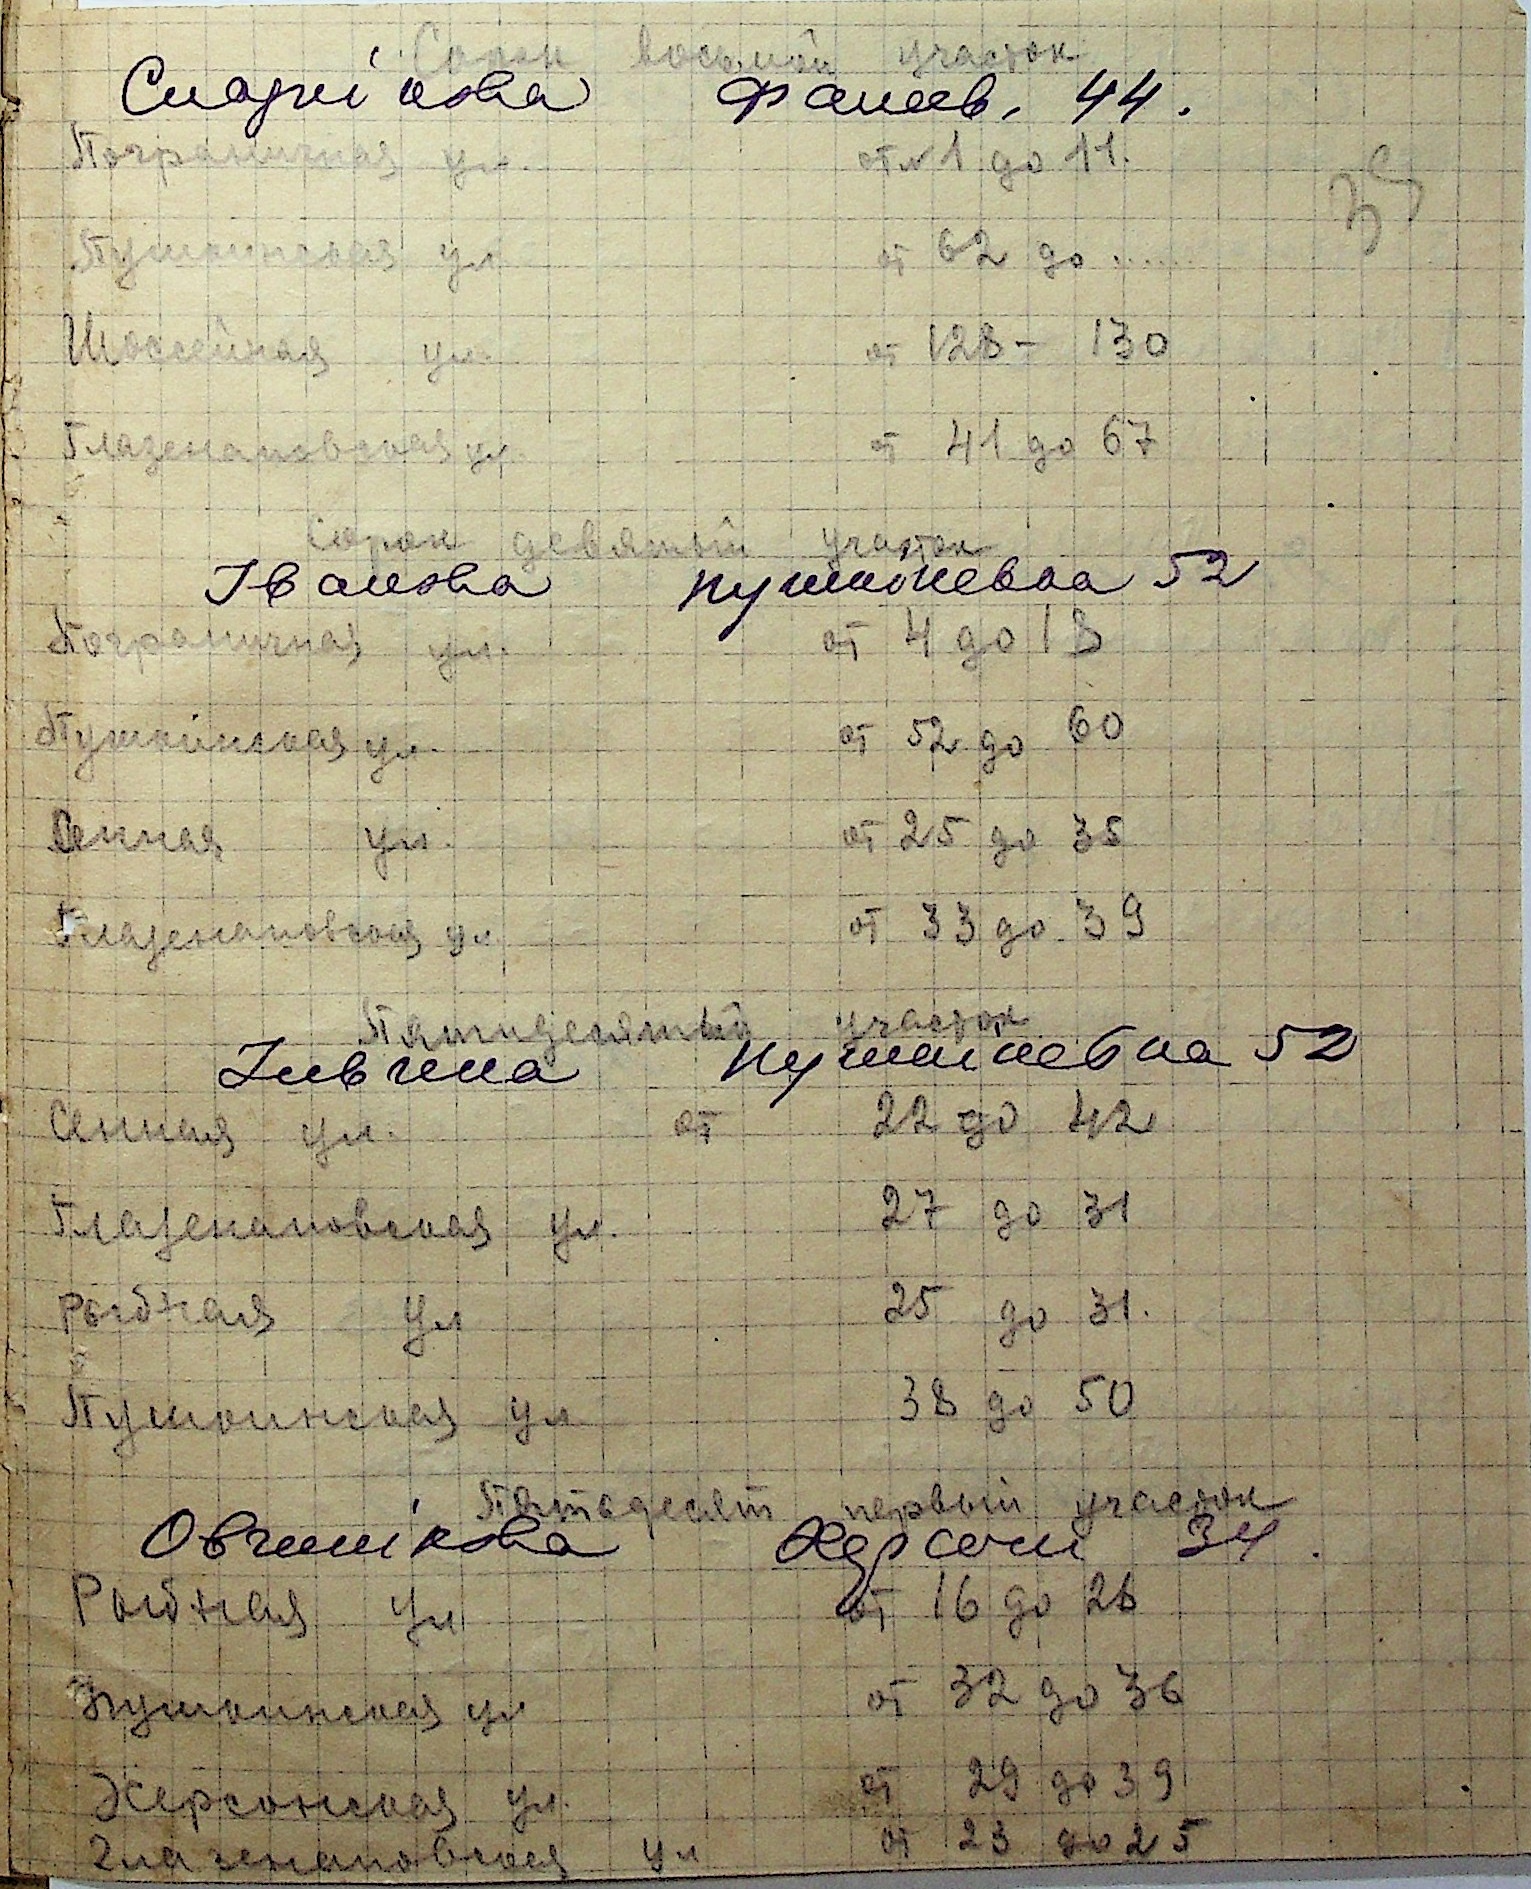 Сорок восьмой участок
Сладкікова Фалеев. 44.
Пограничная ул. от № 1 до 11.
35
Пушкинская ул от 62 до ......
Шоссейная ул. от 128 - 130
Глазенаповская ул. от 41 до 67
Сорок девятый участок
Іванова Пушкіневка 52
Пограничная ул. от 4 до 18
Пушкинская ул. от 52 до 60
Сенная ул. от 25 до 35
Глазенаповская ул. от 33 до 39
Пятидесятый участок
Пушкіневка 52
Сенная ул. от 22 до 42
Глазенаповская ул. 27 до 31
Рыбная ул 25 до 31.
Пушкинская ул 38 до 50
Пятьдесят первый участок
Овчинікова Херсонск 34.
Рыбная ул от 16 до 26
Пушкинская ул от 32 до 36
Херсонская ул. от 29 до 39
Глазенаповская ул от 23 до 25